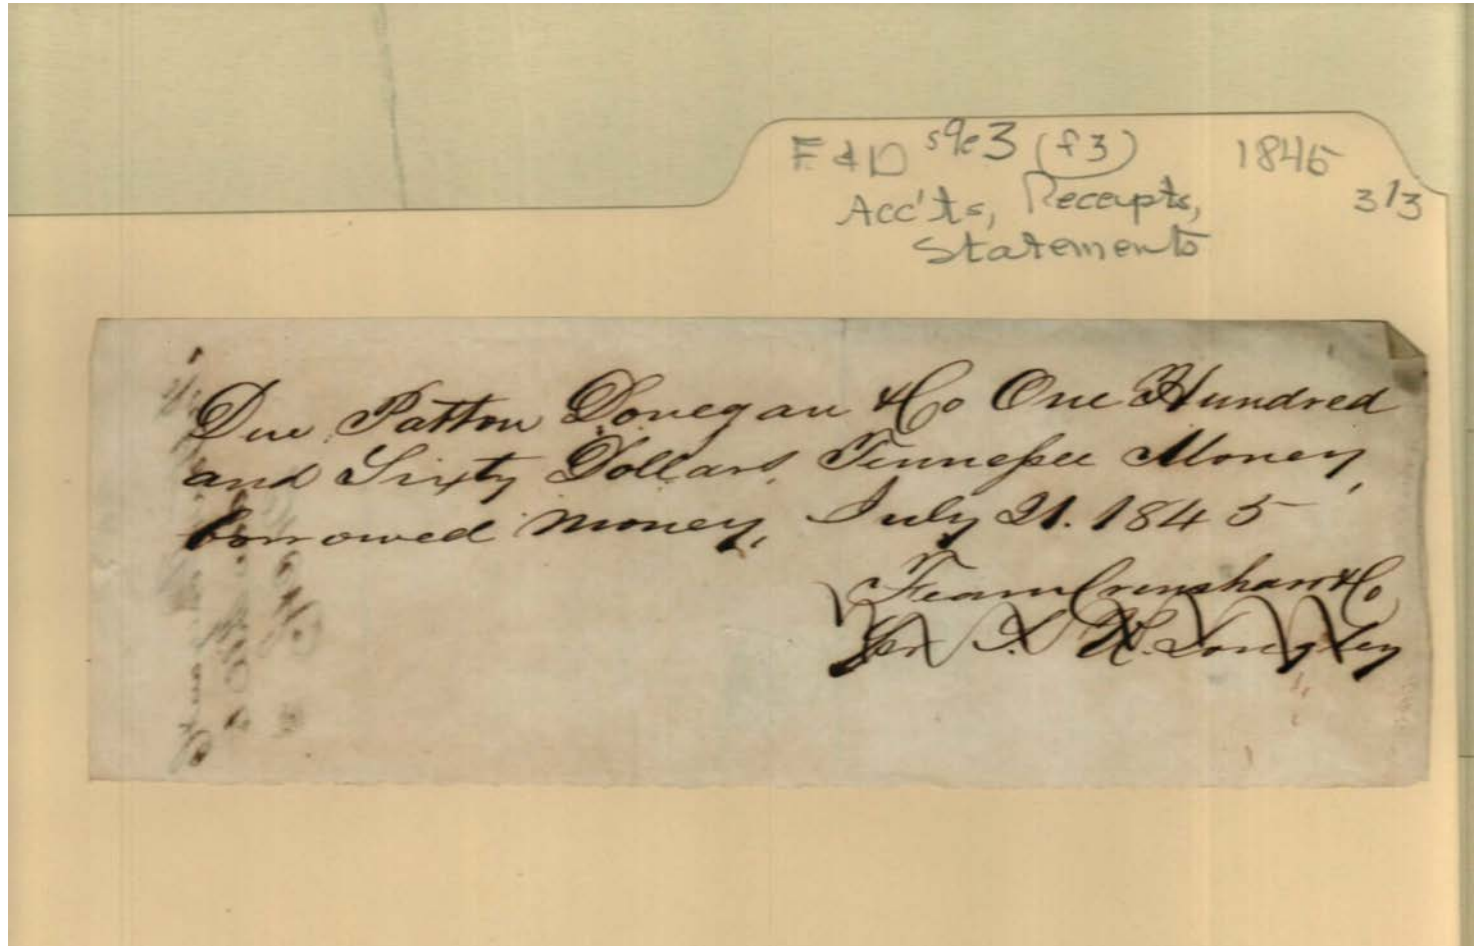 F & D s9e3 (f3) 1845
3/3
Acc'ts, Receipts,
Statements
Due Patton Donegan & Co One Hundred
and Sixty Dollars, Tennessee Money,
borrowed money, July 21. 1845
Fearn Crenshaw & Co
Per S. H. Longley